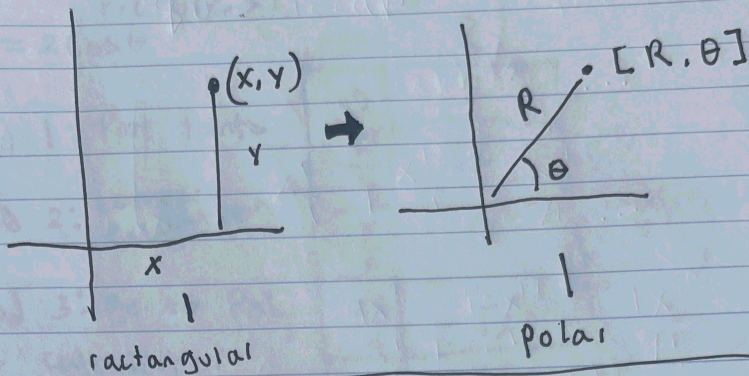 (X, Y)
Y
X
ractangular
[R, θ]
R
θ
polar